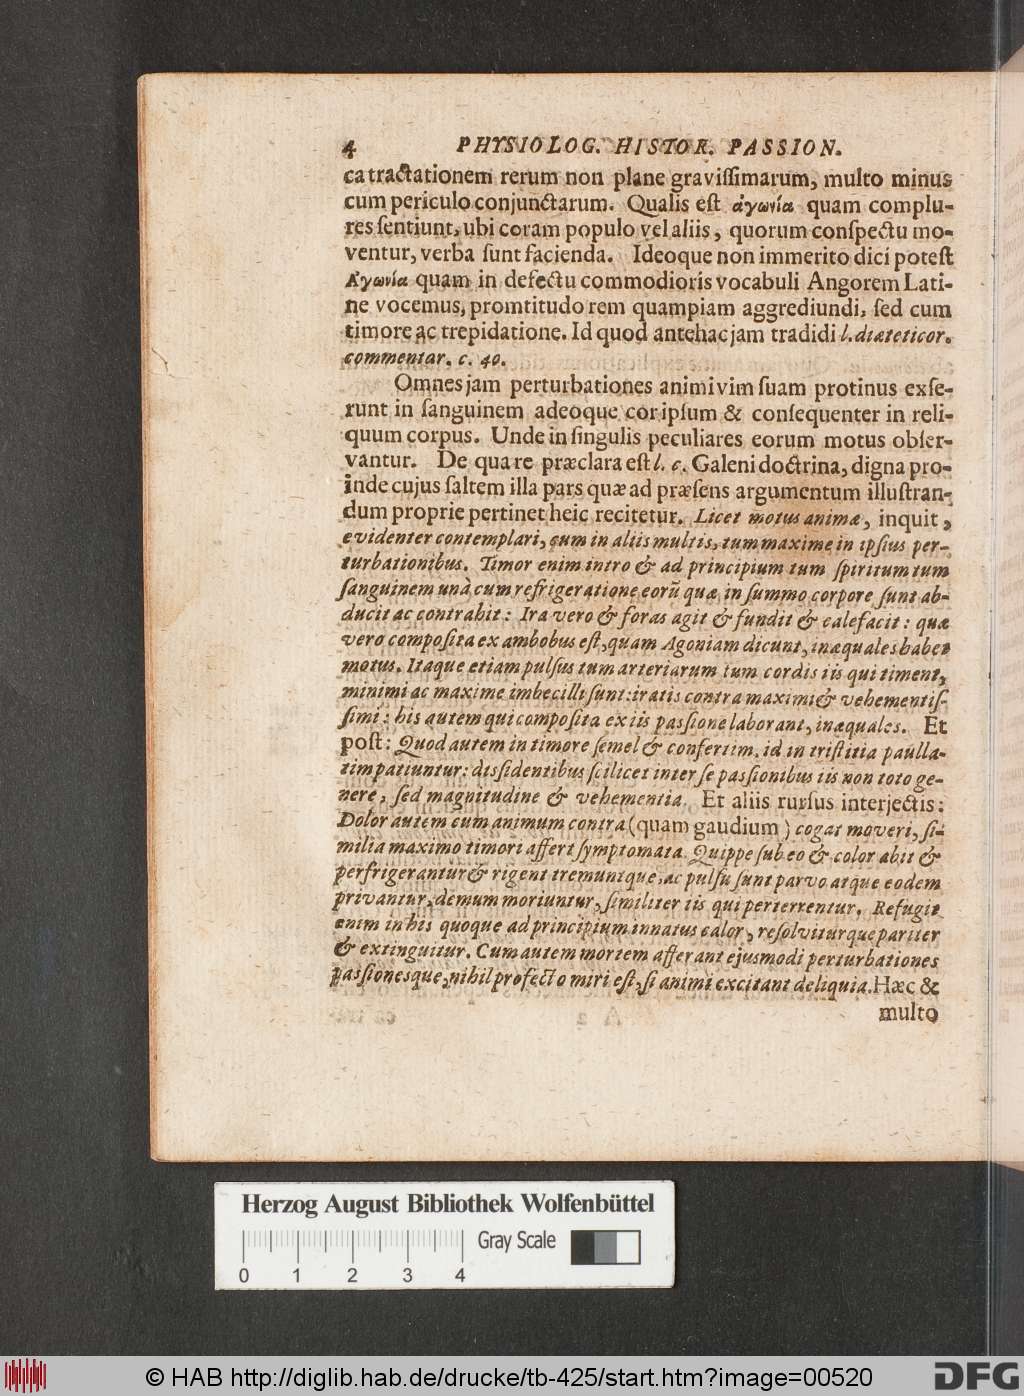 4 PHYSIOLOG. HISTOR. PASSION.
ca tractationem rerum non plane graviſſimarum, multo minus
cum periculo conjunctarum. Qualis eſt ἀγωνία quam complu-
res ſentiunt, ubi coram populo vel aliis, quorum conſpectu mo-
ventur, verba ſunt facienda. Ideoque non immerito dici poteſt
Ἀγωνία quam in defectu commodioris vocabuli Angorem Lati-
ne vocemus, promtitudo rem quampiam aggrediundi, ſed cum
timore ac trepidatione. Id quod antehac jam tradidi l. diæteticor.
commentar. c. 40.
Omnes jam perturbationes animi vim ſuam protinus exſe-
runt in ſanguinem adeoque cor ipſum & conſequenter in reli-
quum corpus. Unde in ſingulis peculiares eorum motus obſer-
vantur. De qua re præclara eſt l. c. Galeni doctrina, digna pro-
inde cujus ſaltem illa pars quæ ad præſens argumentum illuſtran-
dum proprie pertinet heic recitetur. Licet motus animæ, inquit,
evidenter contemplari, cum in aliis multis, tum maxime in ipſius per-
turbationibus. Timor enim intro & ad principium tum ſpiritum tum
ſanguinem unà cum refrigeratione eorũ quæ in ſummo corpore ſunt ab-
ducit ac contrahit: Ira vero & foras agit & fundit & calefacit: quæ
vero compoſita ex ambobus eſt, quam Agoniam dicunt, inæquales habet
motus. Itaque etiam pulſus tum arteriarum tum cordis iis qui timent,
minimi ac maxime imbecilli ſunt: iratis contra maximi & vehementiſ-
ſimi: his autem qui compoſita ex iis paſſione laborant, inæquales. Et
poſt: Quod autem in timore ſemel & confertim, id in triſtitia paulla-
tim patiuntur: diſſidentibus ſcilicet inter ſe paſſionibus iis non toto ge-
nere, ſed magnitudine & vehementia. Et aliis rurſus interjectis:
Dolor autem cum animum contra (quam gaudium) cogat moveri, ſi-
milia maximo timori affert ſymptomata. Quippe ſub eo & color abit &
perfrigerantur & rigent tremuntque, ac pulſu ſunt parvo atque eodem
privantur, demum moriuntur, ſimiliter iis qui perterrentur. Refugit
enim in his quoque ad principium innatus calor, reſolviturque pariter
& extinguitur. Cum autem mortem afferant ejuſmodi perturbationes
paſſionesque, nihil profecto miri eſt, ſi animi excitant deliquia. Hæc &
multo
Herzog August Bibliothek Wolfenbüttel
Gray Scale
0 1 2 3 4
© HAB http://diglib.hab.de/drucke/tb-425/start.htm?image=00520
DFG